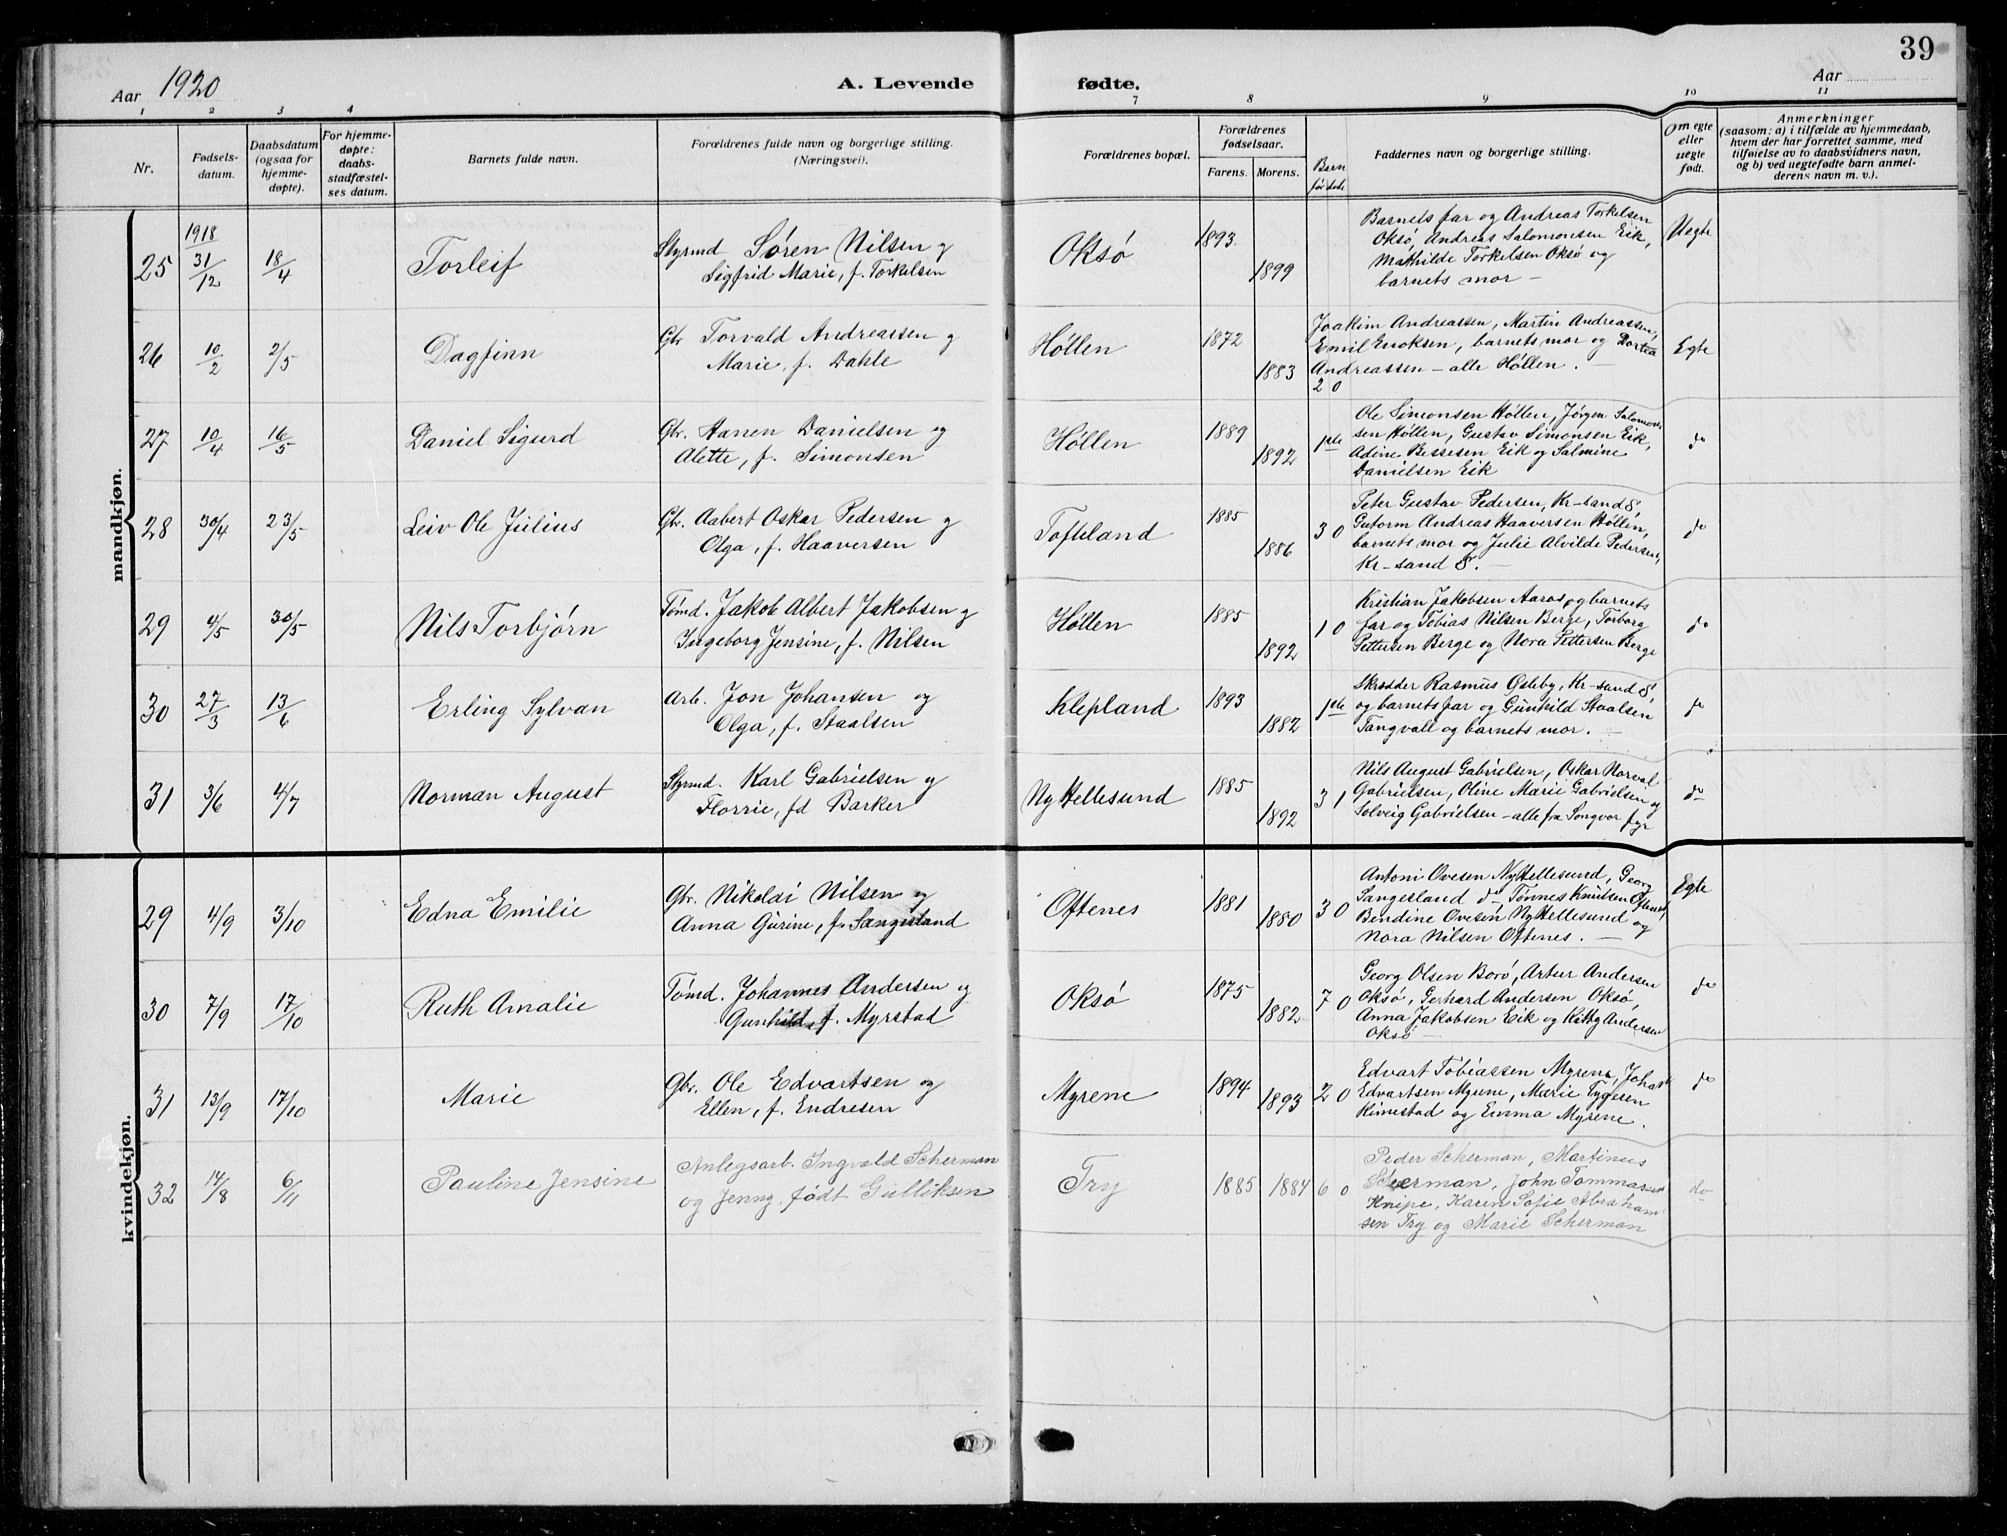 39
Aar 1920
A. Levende fødte.
Aar
1 2 3 4 7 8 9 10 11
Nr.
Fødsels-
datum.
Daabsdatum
(ogsaa for
hjemme-
døpte).
For hjemme-
døpte:
daabs-
stadfæstel-
ses datum.
Barnets fulde navn.
Forældrenes fulde navn og borgerlige stilling.
(Næringsvei).
Forældrenes bopæl.
Forældrenes
fødselsaar.
Farens. Morens.
Barn
Faddernes navn og borgerlige stilling.
Om egte
eller
uegte
født.
Anmerkninger
(saasom: a) i tilfælde av hjemmedaab,
hvem der har forrettet samme, med
tilføielse av to daabsvidners navn,
og b) ved uegtefødte barn anmel-
derens navn m. v.).
mandkjøn.
25 1918 31/12 18/4 Torleif
Styrmd Søren Nilsen og
Sigfrid Marie, f. Torkelsen
Oksø 1893 1899
Barnets far og Andreas Torkelsen
Oksø, Andreas Salomonsen Eik,
Mathilde Torkelsen Oksø og
barnets mor —
Uegte
26 10/2 2/5 Dagfinn
Gbr Torvald Andreassen og
Marie, f. Dahle
Høllen 1872 1883
Joakim Andreassen, Martin Andreassen,
Emil Enoksen, barnets mor og Dortea
Andreassen — alle Høllen.
2 0
Egte
27 10/4 16/5 Daniel Sigurd
Gbr. Hanen Danielsen og
Alette, f. Simonsen
Høllen 1889 1892 1ste
Ole Simonsen Høllen, Jørgen Salomon-
sen Høllen, Gustav Simonsen Eik,
Adine Bessesen Eik og Salmine
Danielsen Eik
do
28 30/4 23/5 Leiv Ole Julius
Gbr. Aabert Oskar Pedersen og
Olga, f. Haaversen
Tofteland 1885 1886 3 0
Peter Gustav Pedersen, Kr-sand S,
Gutorm Andreas Haaversen Høllen,
barnets mor og Julie Alvilde Pedersen,
Kr-sand S. —
do
29 4/5 30/5 Nils Torbjørn
Tømd. Jakob Albert Jakobsen og
Ingeborg Jensine, f. Nilsen
Høllen 1885 1892 1 0
Kristian Jakobsen Aaros, og barnets
far og Tobias Nilsen Berge, Torborg
Pettersen Berge og Nora Pettersen Berge
do
30 27/3 13/6 Erling Sylvan
Arb. Jon Johansen og
Olga, f. Staalsen
Klepland 1893 1882 1ste
Skrædder Rasmus Osleby, Kr-sand S,
og barnets far og Gunhild Staalsen
Tangvall og barnets mor. —
do
31 3/6 4/7 Norman August
Styrmd. Karl Gabrielsen og
Florrie, fd Barker
Ny Hellesund 1885 1892 3 1
Nils August Gabrielsen, Oskar Norval
Gabrielsen, Oline Marie Gabrielsen og
Solveig Gabrielsen — alle fra Songvor fyr
do
kvindekjøn.
29 4/9 3/10 Edna Emilie
Gbr. Nikolai Nilsen og
Anna Gurine, f. Sangesland
Oftenes 1881 1880 3 0
Antoni Ovesen Ny Hellesund, Georg
Sangesland do Tønnes Knudsen Oftenes,
Bendine Ovesen Ny Hellesund og
Nora Nilsen Oftenes. —
Egte
30 7/9 17/10 Ruth Amalie
Tømd. Johannes Andersen og
Gunhild, f. Myrstad
Oksø 1875 1882 7 0
Georg Olsen Borø, Artur Andersen
Oksø, Gerhard Andersen Oksø,
Anna Jakobsen Eik og Kitty Andersen
Oksø —
do
31 13/9 17/10 Marie
Gbr. Ole Edvartsen og
Ellen, f. Endresen
Myrene 1894 1893 2 0
Edvart Tobiassen Myrene, Johan
Edvartsen Myrene, Marie Tygesen
Kimestad og Emma Myrene.
do
32 14/8 6/11 Pauline Jensine
Anlegsarb. Ingvald Scherman
og Jenny, født Gulliksen
Try 1885 1884 6 0
Peder Scherman, Martinus
Scherman, John Tommassen
Knipe, Karen Sofie Abraham-
sen Try og Marie Scherman
do